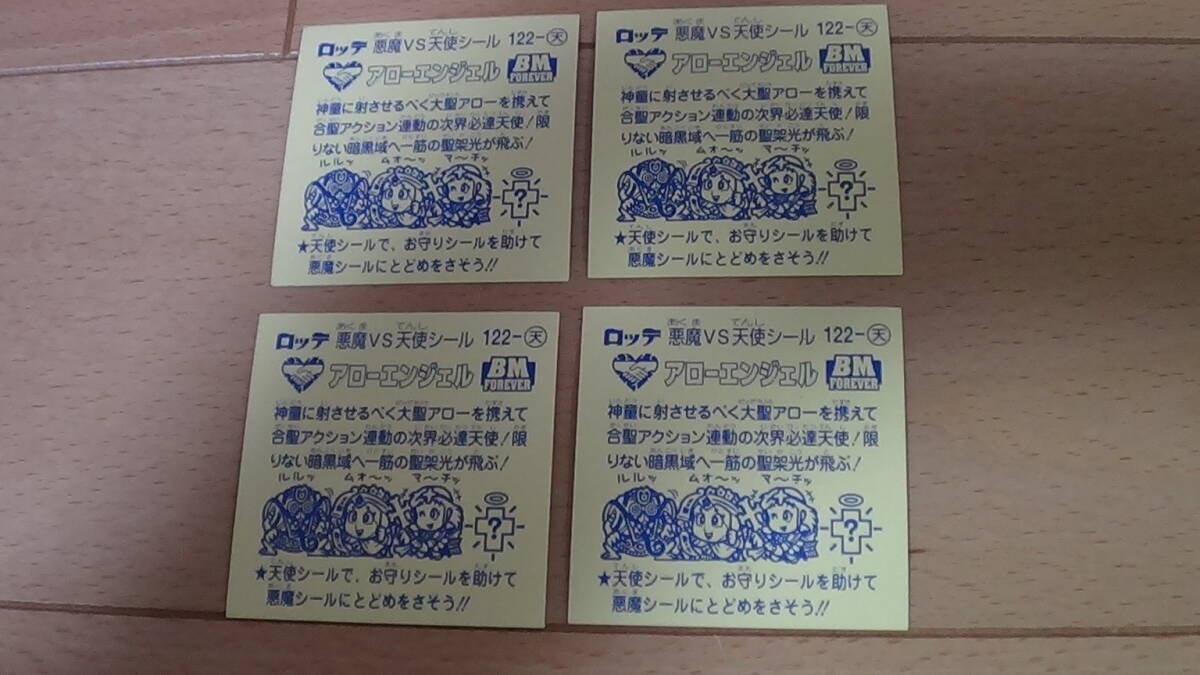 ロッテ 悪魔VS天使シール 122-天
アローエンジェル BM FOREVER
神童に射させるべく大聖アローを携えて
合聖アクション連動の次界必達天使!限
りない暗黒域へ一筋の聖架光が飛ぶ!
ルルッ ムォ〜ッ マ〜チッ
?
★天使シールで、お守りシールを助けて
悪魔シールにとどめをさそう!!
ロッテ 悪魔VS天使シール 122-天
アローエンジェル BM FOREVER
神童に射させるべく大聖アローを携えて
合聖アクション連動の次界必達天使!限
りない暗黒域へ一筋の聖架光が飛ぶ!
ルルッ ムォ〜ッ マ〜チッ
?
★天使シールで、お守りシールを助けて
悪魔シールにとどめをさそう!!
ロッテ 悪魔VS天使シール 122-天
アローエンジェル BM FOREVER
神童に射させるべく大聖アローを携えて
合聖アクション連動の次界必達天使!限
りない暗黒域へ一筋の聖架光が飛ぶ!
ルルッ ムォ〜ッ マ〜チッ
?
★天使シールで、お守りシールを助けて
悪魔シールにとどめをさそう!!
ロッテ 悪魔VS天使シール 122-天
アローエンジェル BM FOREVER
神童に射させるべく大聖アローを携えて
合聖アクション連動の次界必達天使!限
りない暗黒域へ一筋の聖架光が飛ぶ!
ルルッ ムォ〜ッ マ〜チッ
?
★天使シールで、お守りシールを助けて
悪魔シールにとどめをさそう!!